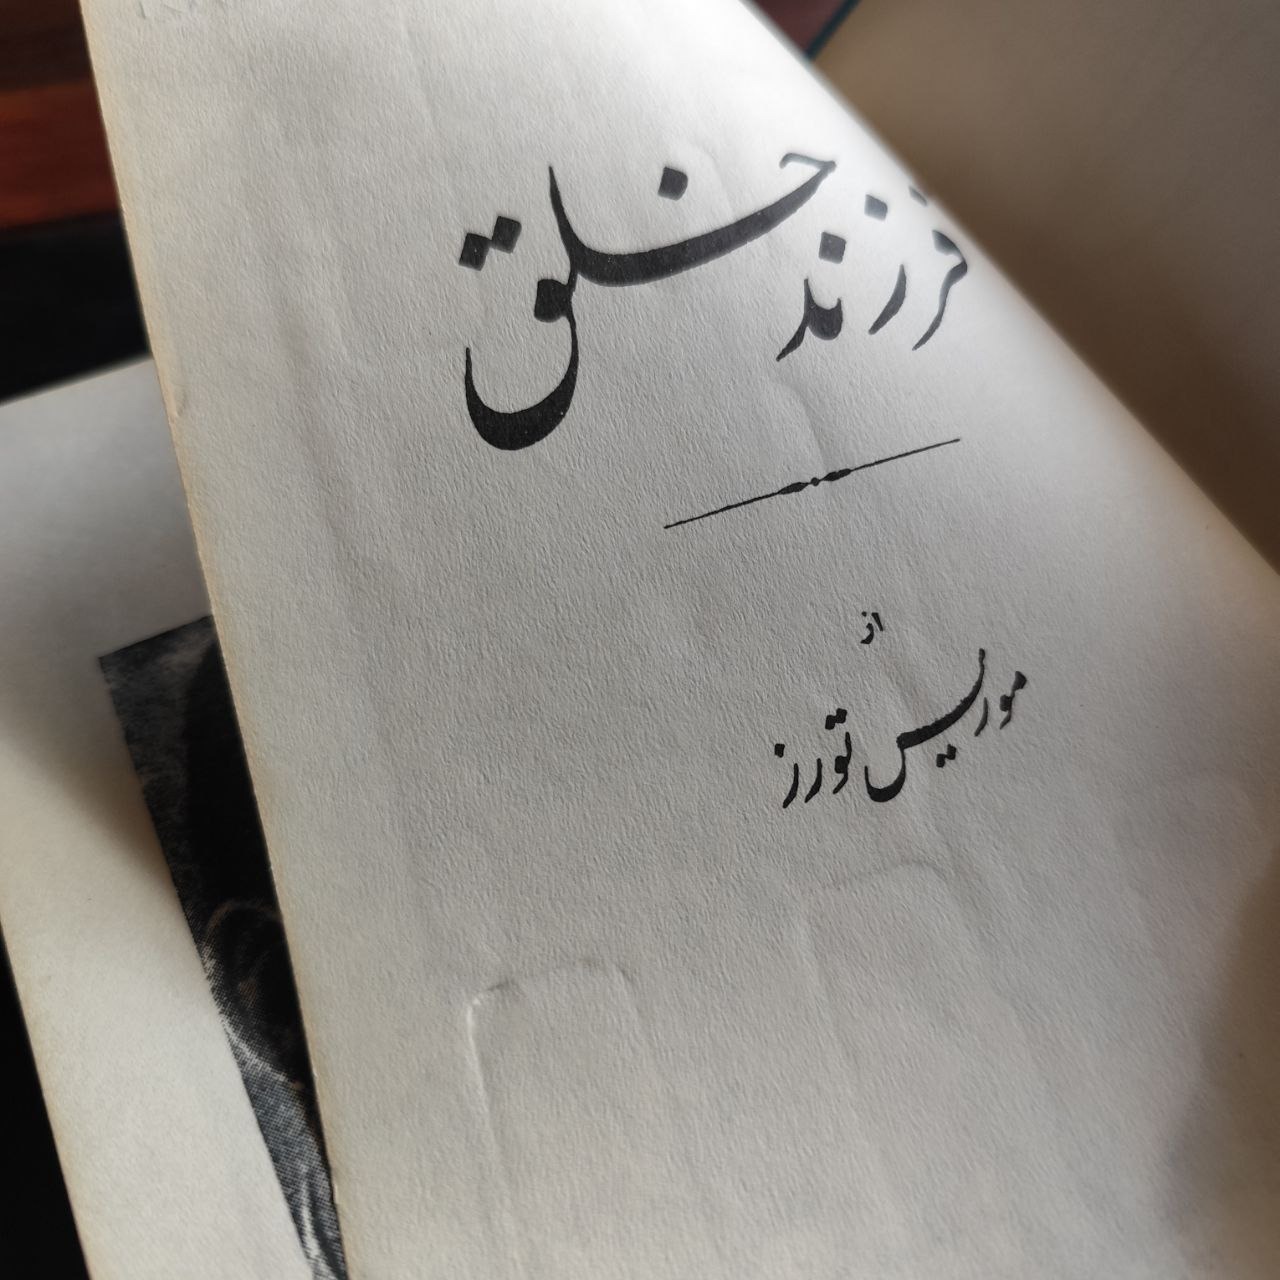 فرزند خلق
از
موریس تورز